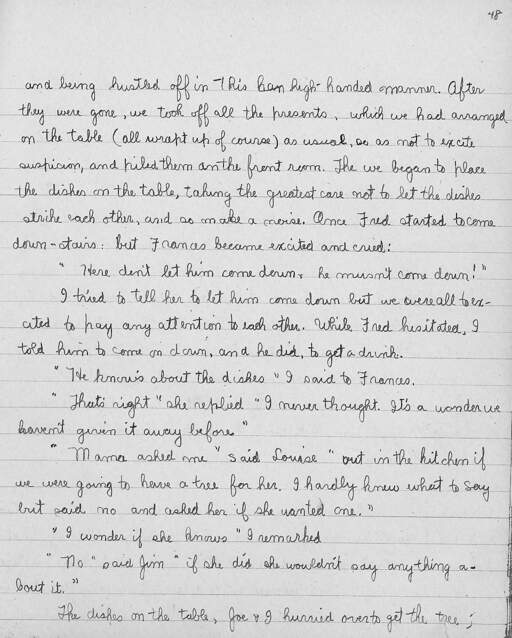 48
and being hustled off in this high-handed manner. After
they were gone, we took off all the presents, which we had arranged
on the table (all wrapt up of course) as usual, so as not to excite
suspicion, and piled them in the front room. The we began to place
the dishes on the table, taking the greatest care not to let the dishes
strike each other, and so make a noise. Once Fred started to come
down-stairs: but Frances became excited and cried:
" Here don't let him come down, he musn't come down!"
I tried to tell her to let him come down but we were all to ex-
cited to pay any attention to each other. While Fred hesitated, I
told him to come on down, and he did, to get a drink.
" He knows about the dishes " I said to Frances.
" That's right " she replied " I never thought. It's a wonder we
haven't given it away before "
" Mama asked me " said Louise " out in the kitchen if
we were going to have a tree for her. I hardly knew what to say
but said no and asked her if she wanted one."
" I wonder if she knows " I remarked
" No " said Jim " if she did she wouldn't say anything a-
bout it."
The dishes on the table, Joe & I hurried over to get the tree;